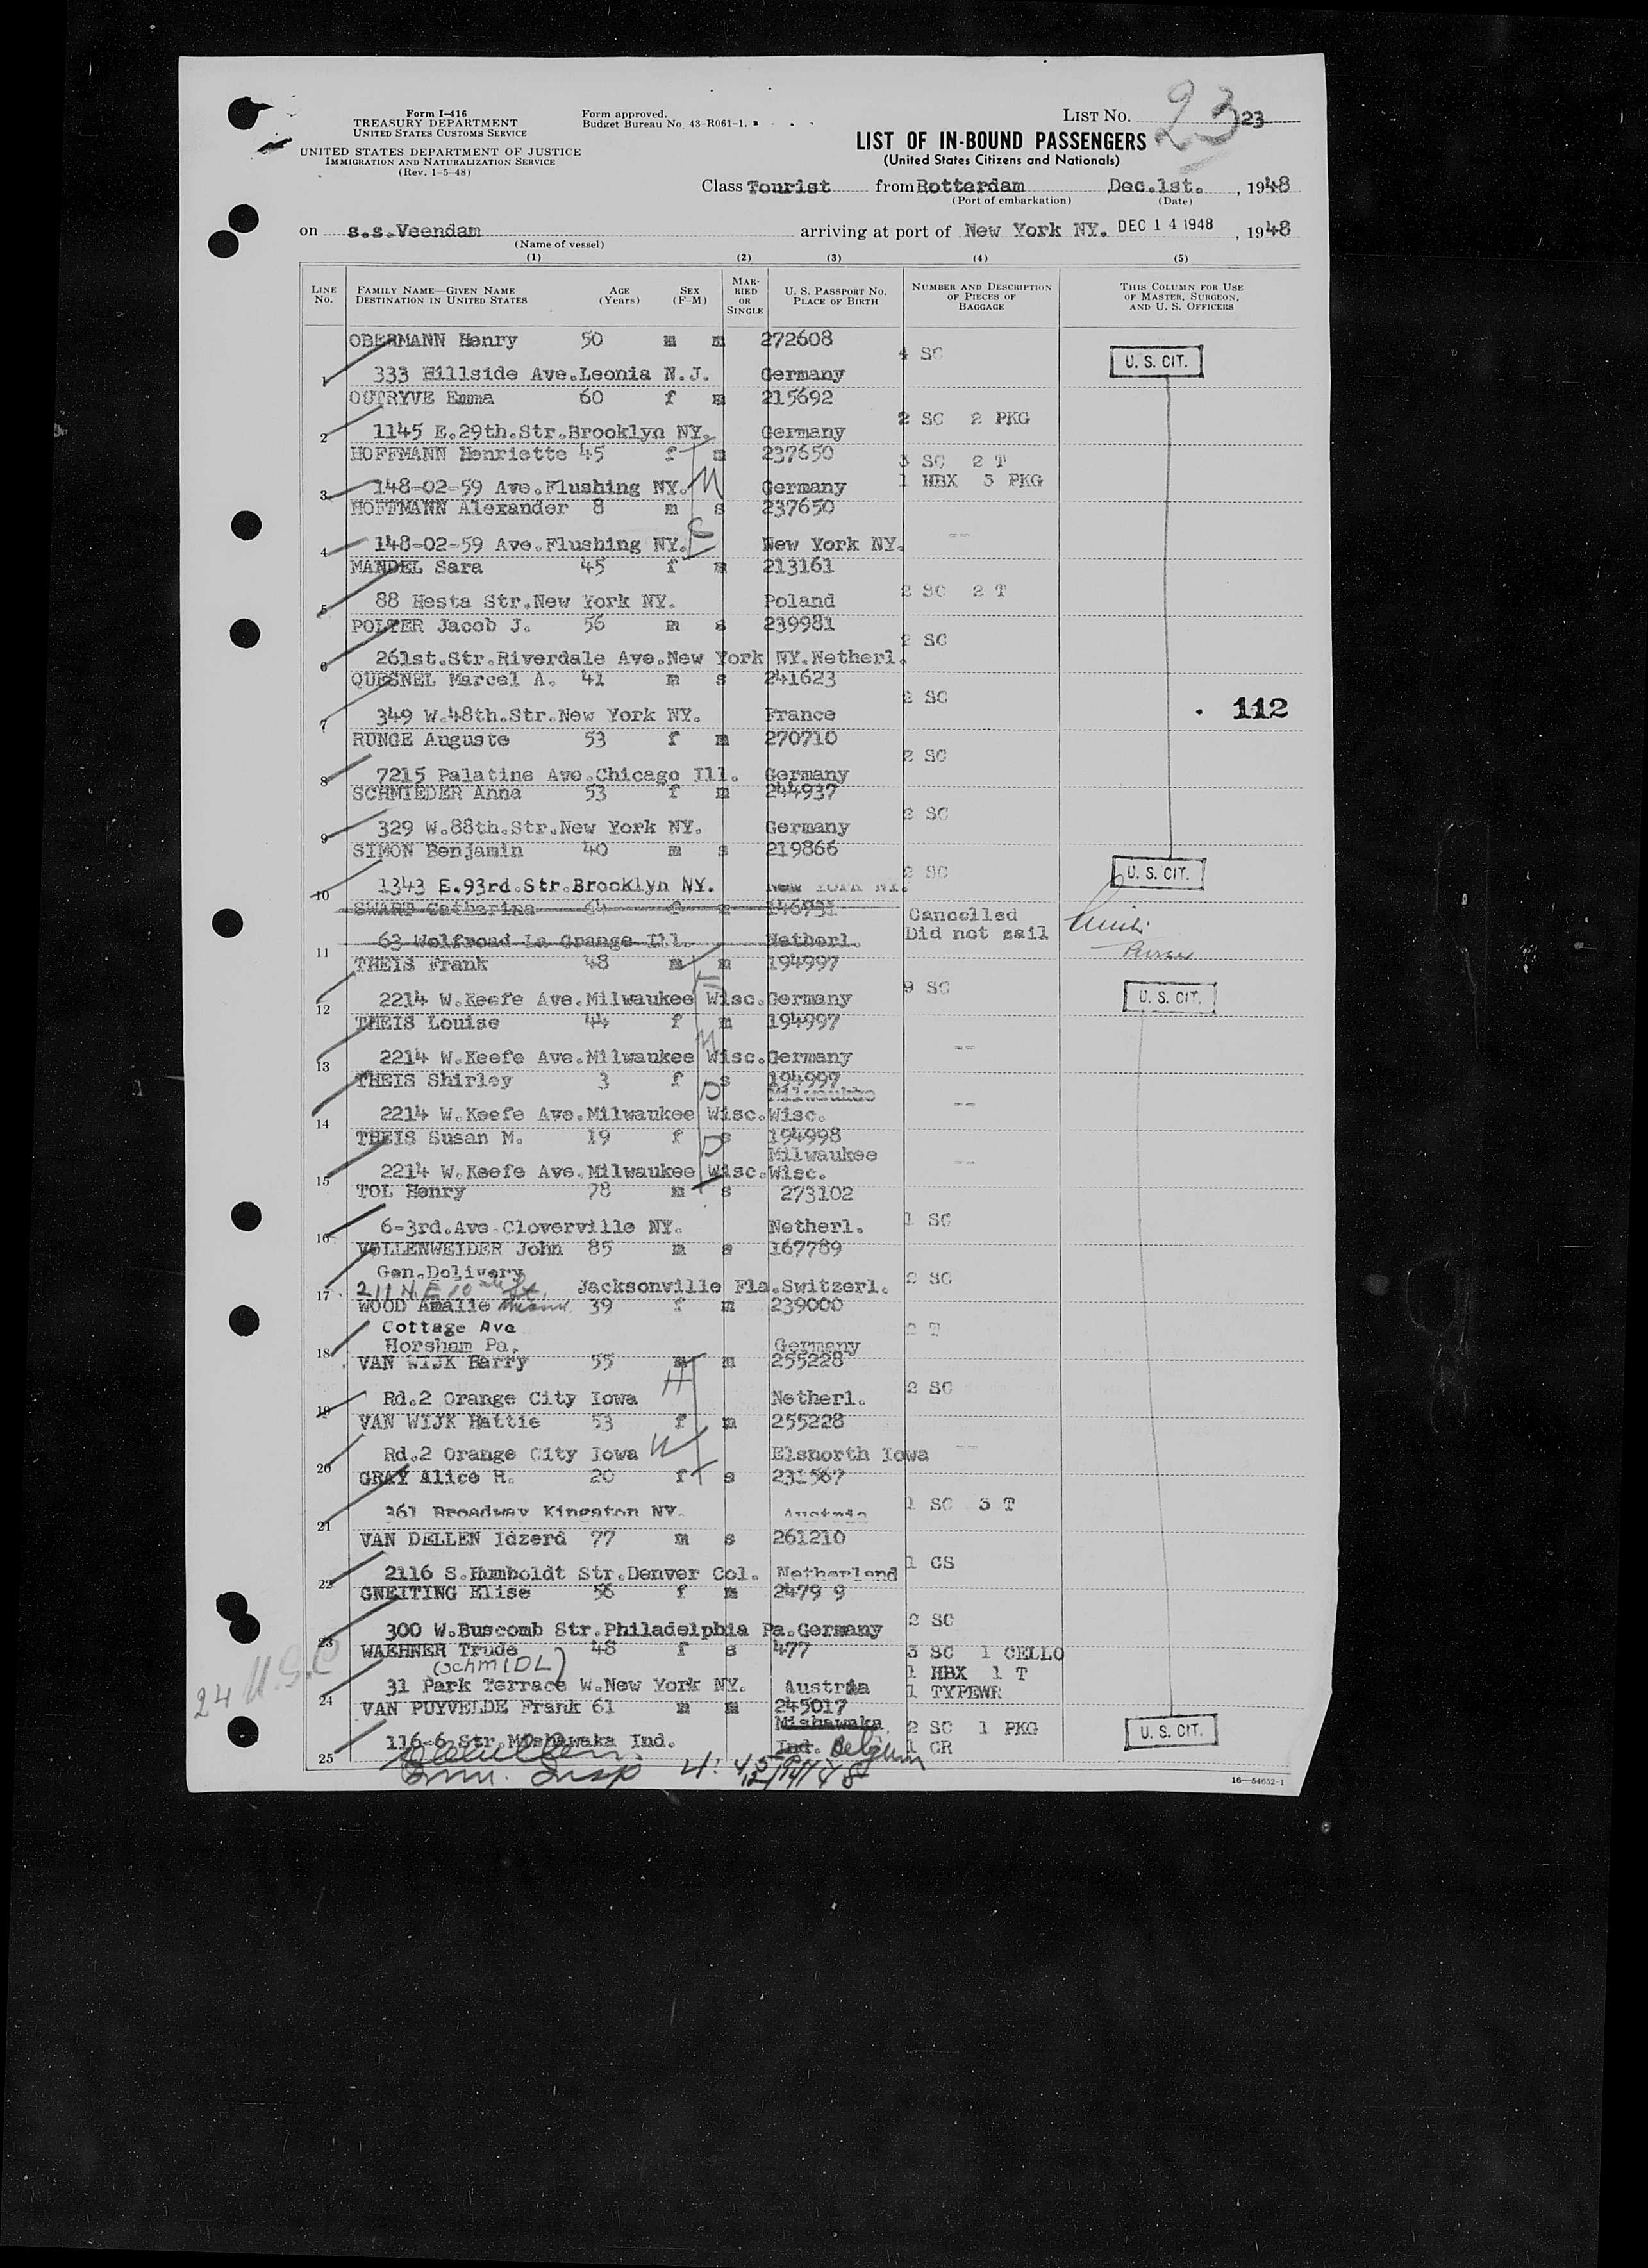 Form I-416
TREASURY DEPARTMENT
UNITED STATES CUSTOMS SERVICE
UNITED STATES DEPARTMENT OF JUSTICE
IMMIGRATION AND NATURALIZATION SERVICE
(Rev. 1-5-48)
Form approved.
Budget Bureau No. 43-R061-1.
LIST NO. 23 23
LIST OF IN-BOUND PASSENGERS
(United States Citizens and Nationals)
Class Tourist from Rotterdam Dec.1st. , 1948
(Port of embarkation) (Date)
on s.s.Veendam arriving at port of New York NY. DEC 14 1948 , 1948
(Name of vessel)
(1) (2) (3) (4) (5)
LINE NO. FAMILY NAME—GIVEN NAME DESTINATION IN UNITED STATES AGE (Years) SEX (F-M) MARRIED OR SINGLE U. S. PASSPORT NO. PLACE OF BIRTH NUMBER AND DESCRIPTION OF PIECES OF BAGGAGE THIS COLUMN FOR USE OF MASTER, SURGEON, AND U. S. OFFICERS
OBERMANN Henry 50 m m 272608
4 SC U. S. CIT.
1 333 Hillside Ave.Leonia N.J. Germany
OUTRYVE Emma 60 f m 215692
2 SC 2 PKG
2 1145 E.29th.Str.Brooklyn NY. Germany
HOFFMANN Henriette 45 f m 237650
3 SC 2 T
3 148-02-59 Ave.Flushing NY. M Germany 1 HBX 3 PKG
HOFFMANN Alexander 8 m s 237650
4 148-02-59 Ave.Flushing NY. S New York NY. --
MANDEL Sara 45 f m 213161
2 SC 2 T
5 88 Hesta Str.New York NY. Poland
POLTER Jacob J. 56 m s 239981
2 SC
6 261st.Str.Riverdale Ave.New York NY.Netherl.
QUESNEL Marcel A. 41 m s 241623
2 SC
7 349 W.48th.Str.New York NY. France 112
RUNGE Auguste 53 f m 270710
2 SC
8 7215 Palatine Ave.Chicago Ill. Germany
SCHMIEDER Anna 53 f m 244937
2 SC
9 329 W.88th.Str.New York NY. Germany
SIMON Benjamin 40 m s 219866
2 SC U. S. CIT.
10 1343 E.93rd.Str.Brooklyn NY. New York NY.
SWART Catharina 64 f m 146951
Cancelled
Did not sail
11 63 Wolfroad La Grange Ill. Netherl.
Purser
THEIS Frank 48 m m 194997
9 SC U. S. CIT.
12 2214 W.Keefe Ave.Milwaukee Wisc.Germany
THEIS Louise 44 f m 194997
13 2214 W.Keefe Ave.Milwaukee M Wisc.Germany --
THEIS Shirley 3 f s 194997
D Milwaukee
14 2214 W.Keefe Ave.Milwaukee Wisc.Wisc. --
THEIS Susan M. 19 f s 194998
D Milwaukee
15 2214 W.Keefe Ave.Milwaukee Wisc.Wisc. --
TOL Henry 78 m s 273102
1 SC
16 6-3rd.Ave.Cloverville NY. Netherl.
VOLLENWEIDER John 85 m s 167789
Gen.Delivery 2 SC
17 211 N.E 10th St. Jacksonville Fla.Switzerl.
WOOD Amalie Miami 39 f m 239000
Cottage Ave 2 T
18 Horsham Pa. Germany
VAN WIJK Harry 55 m m 255228
H 2 SC
19 Rd.2 Orange City Iowa Netherl.
VAN WIJK Hattie 53 f m 255228
20 Rd.2 Orange City Iowa W Elsnorth Iowa --
GRAY Alice H. 20 f s 231567
1 SC 3 T
21 361 Broadway Kingston NY. Austria
VAN DELLEN Idzerd 77 m s 261210
1 CS
22 2116 S.Humboldt Str.Denver Col. Netherland
GNEITING Elise 56 f m 2479 9
2 SC
23 300 W.Buscomb Str.Philadelphia Pa.Germany
WAEHNER Trude 48 f s 477 3 SC 1 CELLO
(SchmIDL) 1 HBX 1 T
24 31 Park Terrace W.New York NY. Austria 1 TYPEWR
24 U.S.C
VAN PUYVELDE Frank 61 m m 245017
Mishawaka 2 SC 1 PKG U. S. CIT.
25 116-6 Str.Mishawaka Ind. Ind. Belgium 1 CR
Imm. Insp 4:45 PM
12/14/48
16—54652-1